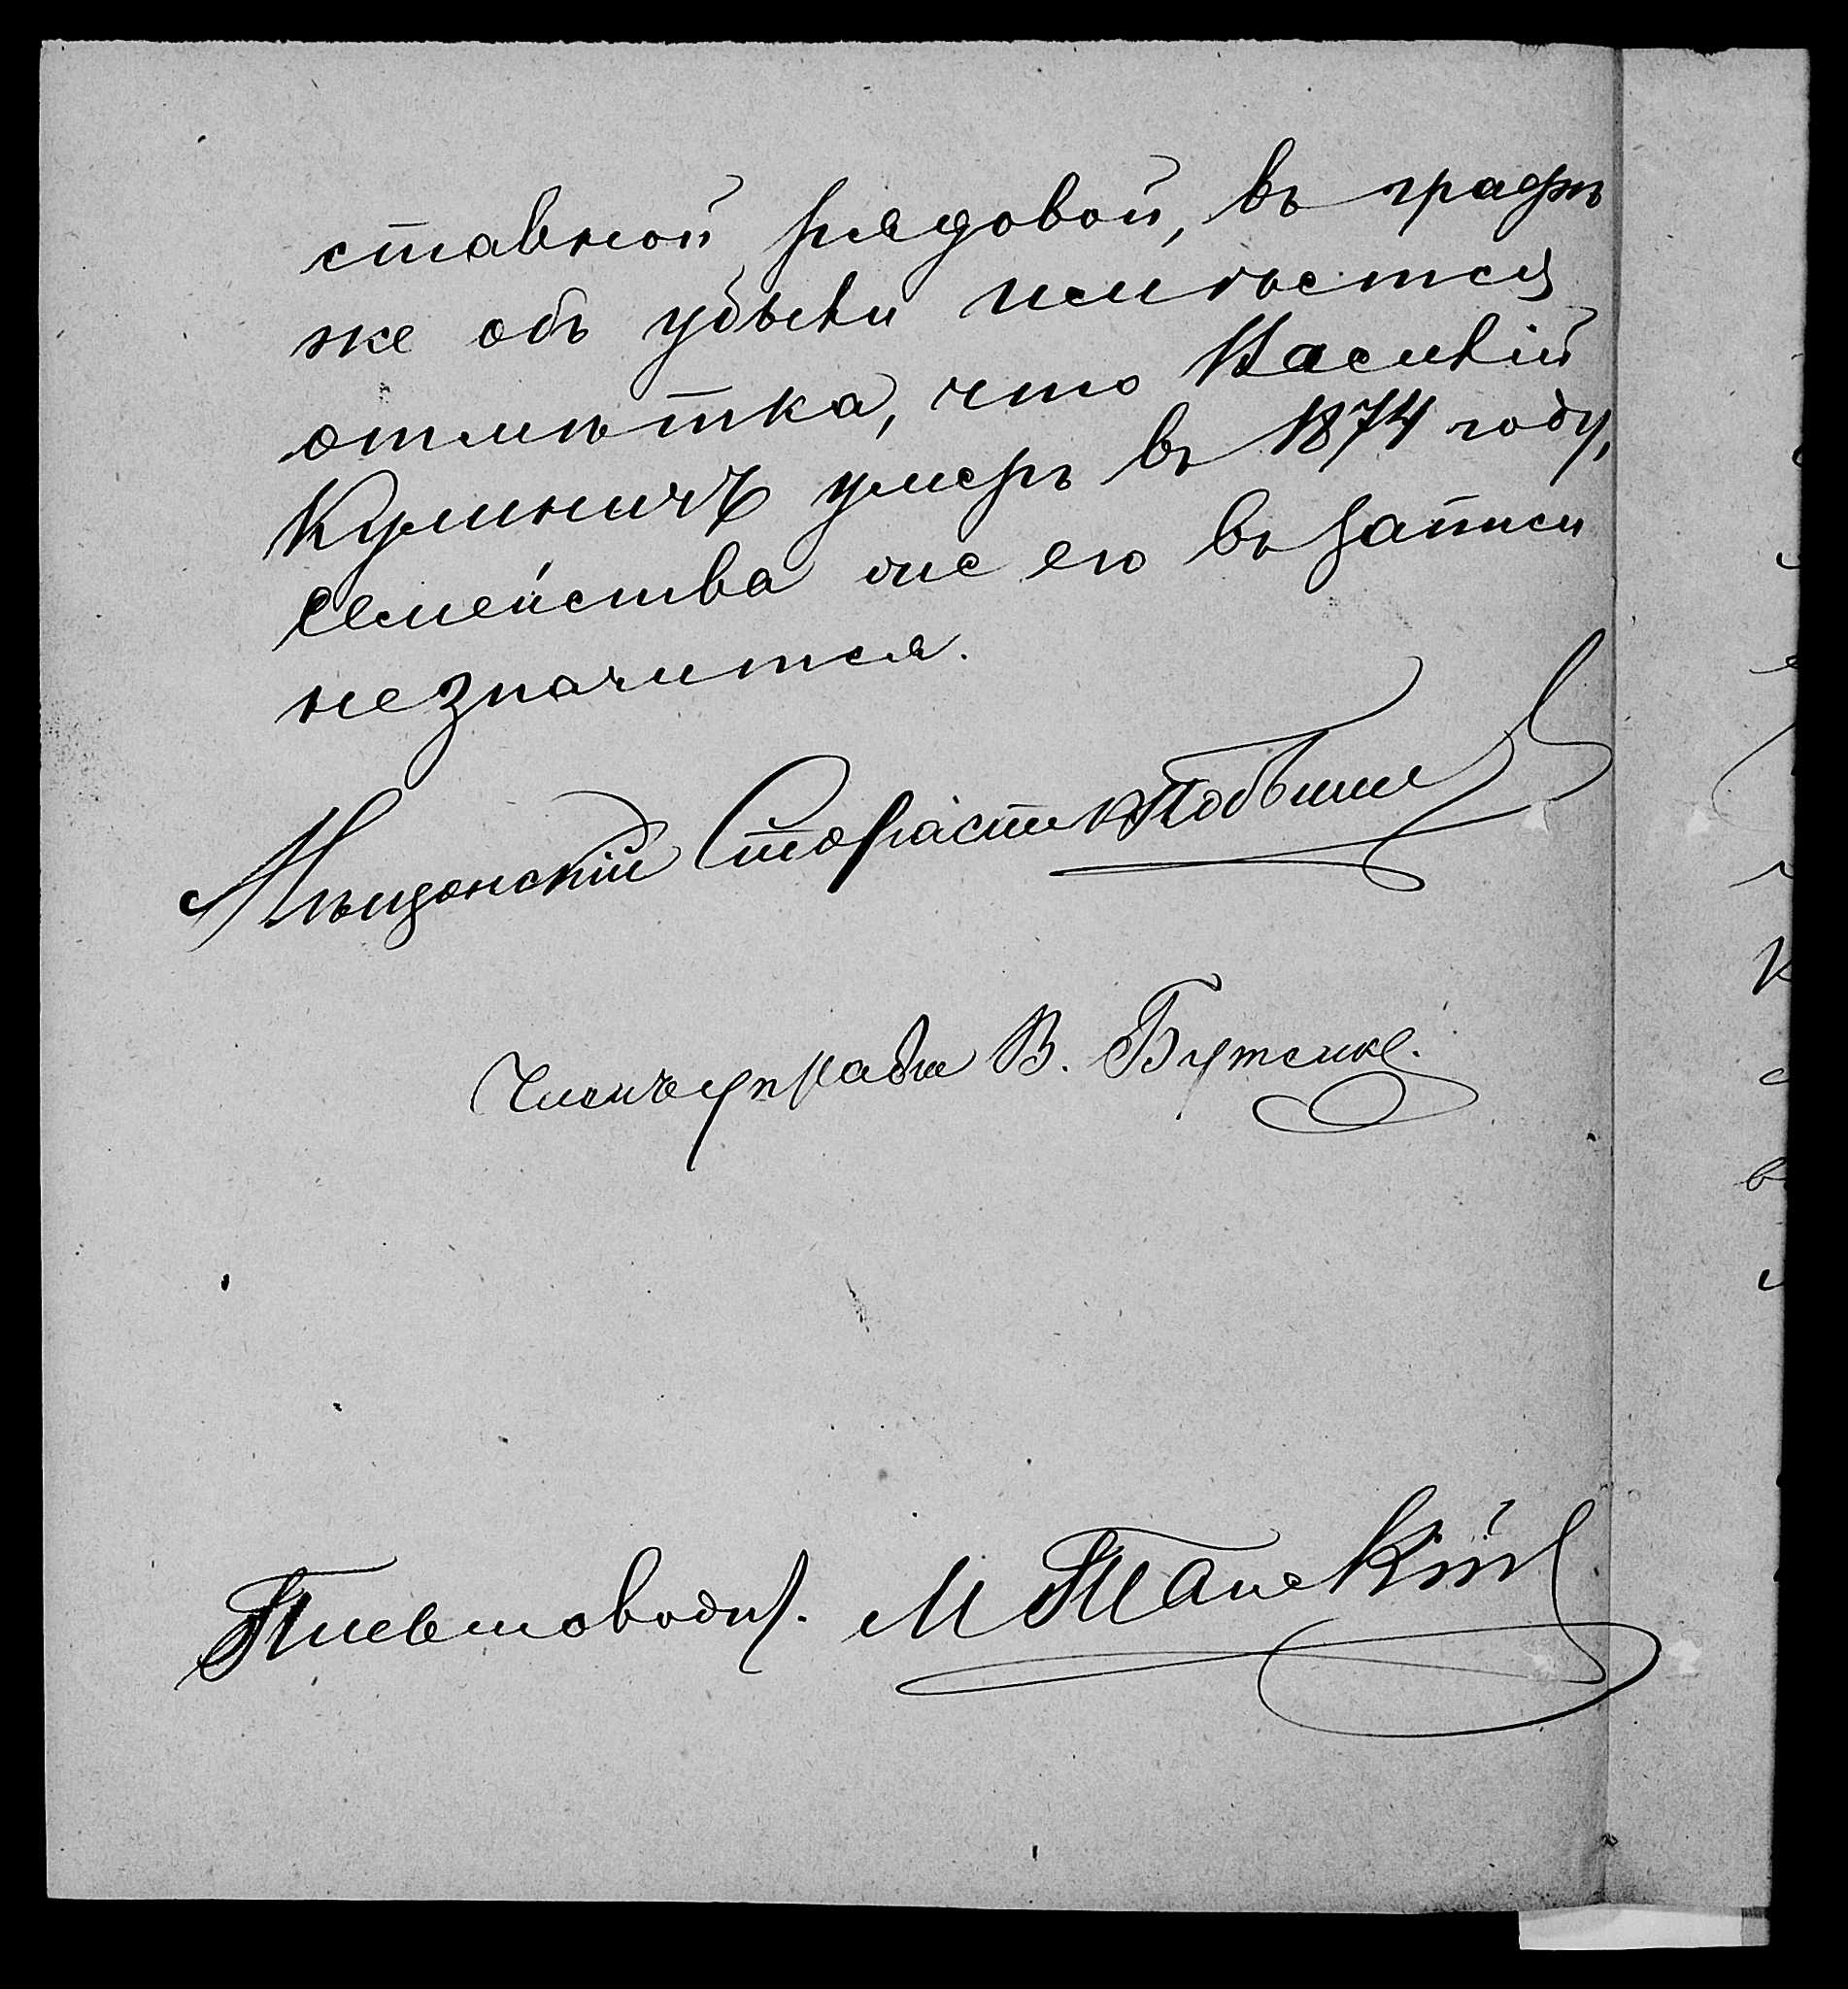 ставной рядовой, въ графѣ
же объ убыли имѣется
отмѣтка, что Василій
Кулиничъ умеръ въ 1874 году,
семейства же его въ записи
незначится.
Мѣщанскій Староста
Членъ управы В. Бутенко.
Письмоводит. М Манскій